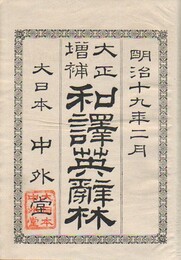 明治十九年二月
大正
增補
和譯英辭林
大日本 中外堂